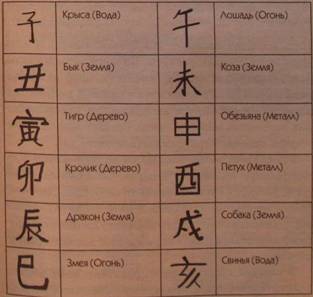 子 Крыса (Вода) 午 Лошадь (Огонь)
丑 Бык (Земля) 未 Коза (Земля)
寅 Тигр (Дерево) 申 Обезьяна (Металл)
卯 Кролик (Дерево) 酉 Петух (Металл)
辰 Дракон (Земля) 戌 Собака (Земля)
巳 Змея (Огонь) 亥 Свинья (Вода)